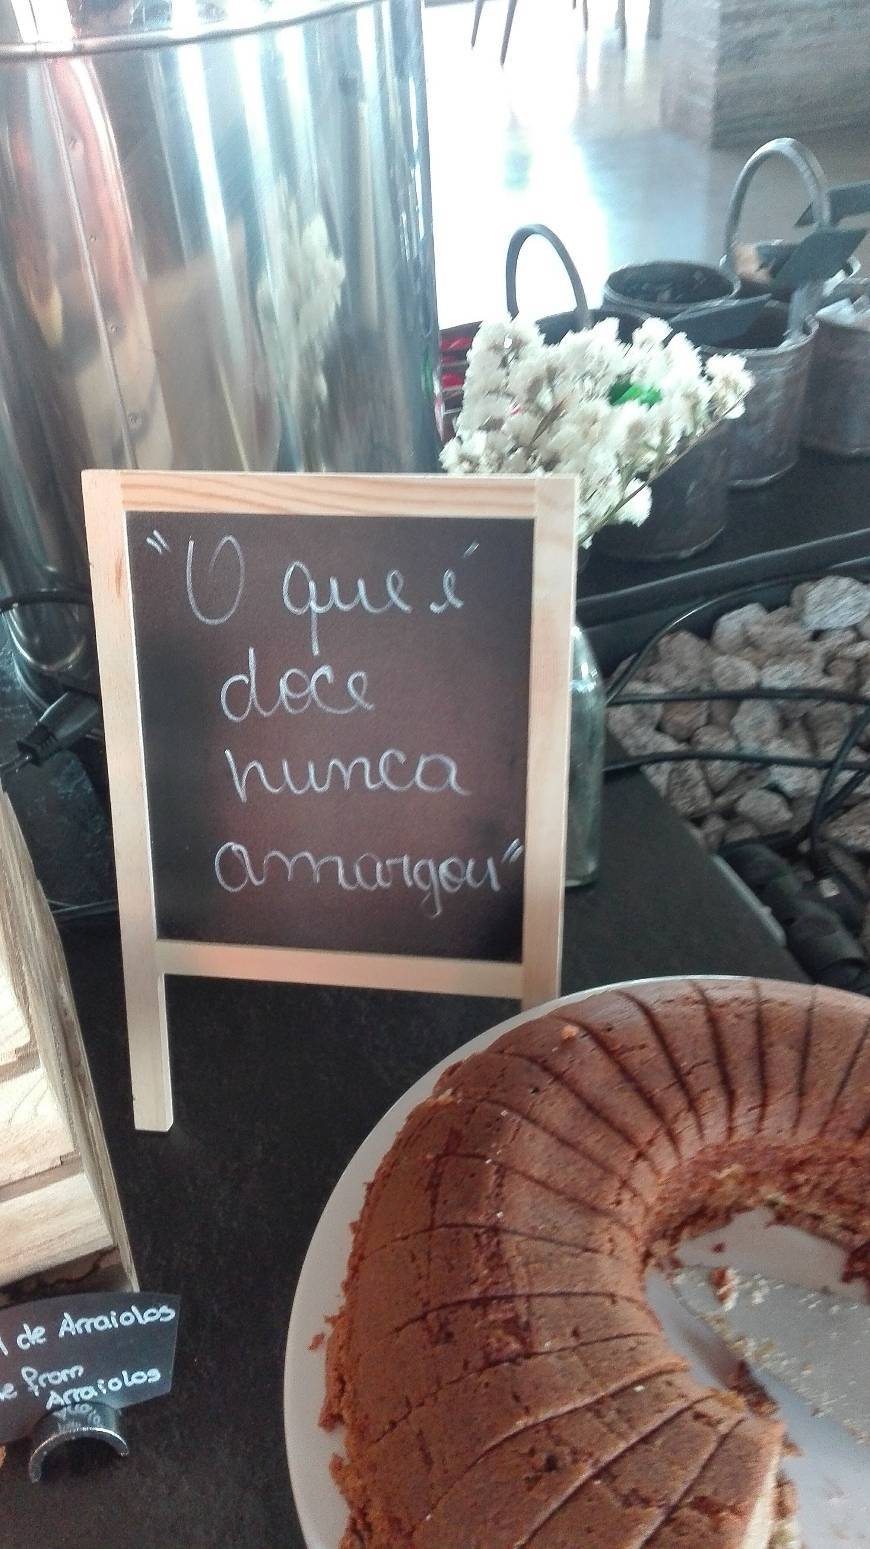 "O que é"
doce
nunca
amargou"
de Arraiolos
from
Arraiolos